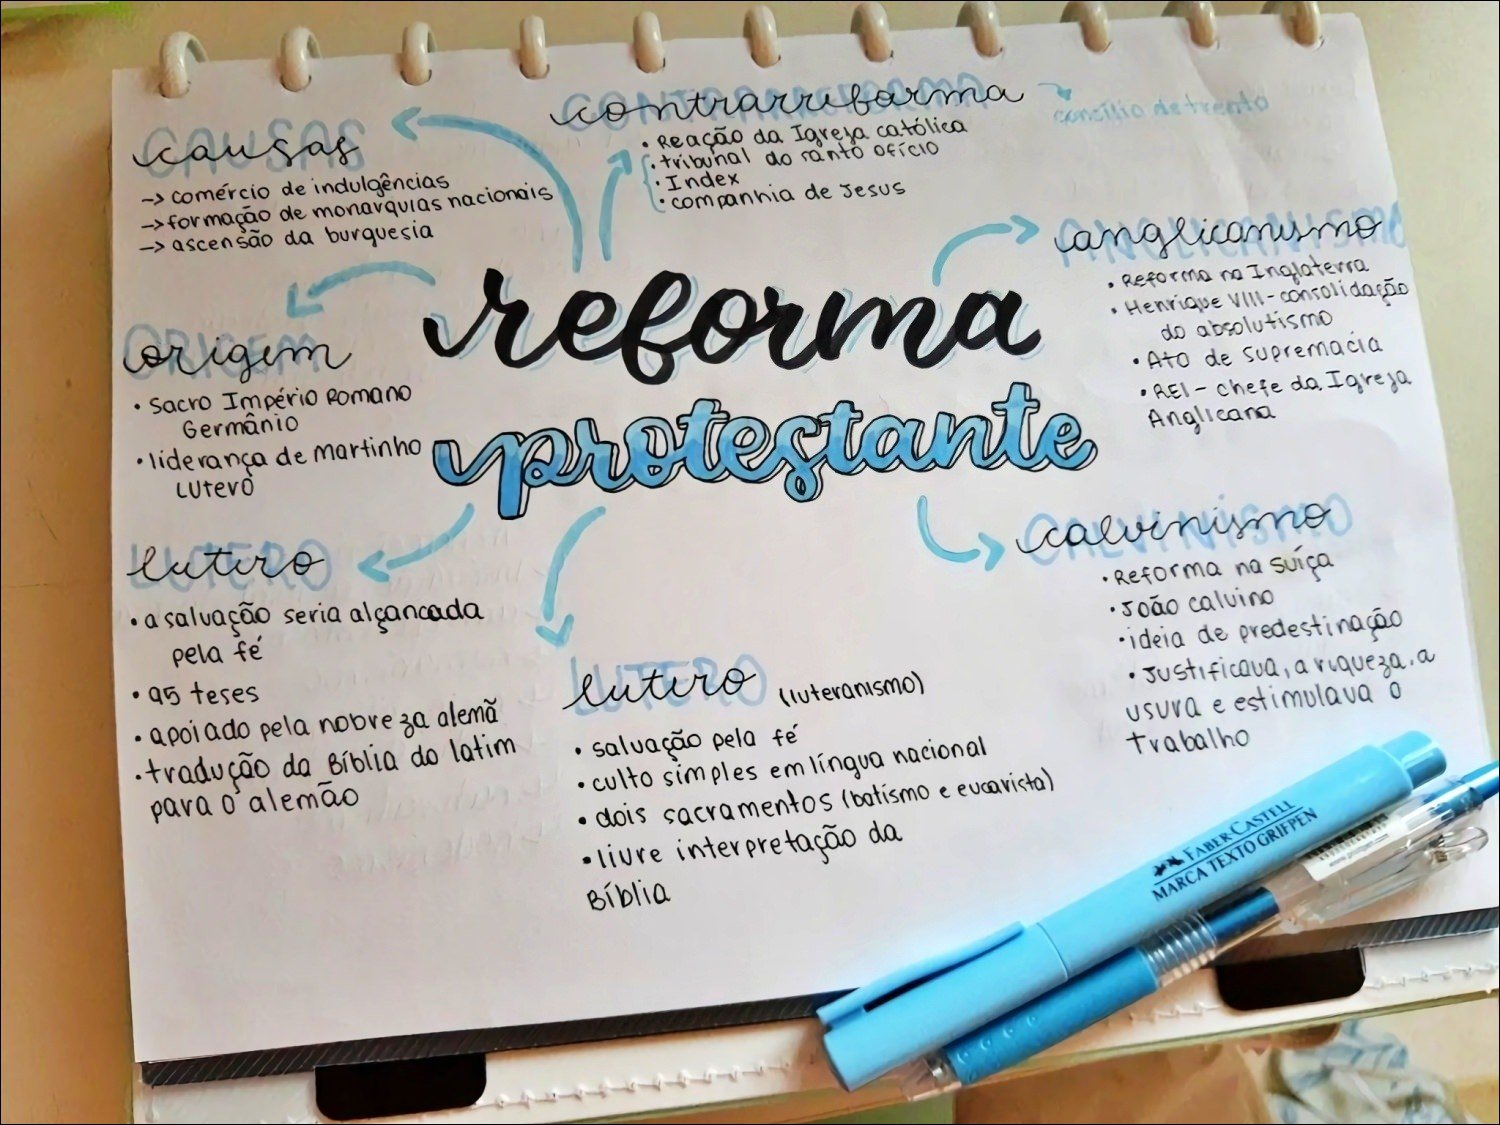 contrarreforma
CONTRARREFORMA
concílio de trento
• Reação da Igreja católica
• tribunal do santo ofício
• Index
• companhia de Jesus
causas
CAUSAS
→ comércio de indulgências
→ formação de monarquias nacionais
→ ascensão da burguesia
anglicanismo
ANGLICANISMO
• Reforma na Inglaterra
• Henrique VIII - consolidação
do absolutismo
• Ato de supremacia
• REI - chefe da Igreja
Anglicana
origem
ORIGEM
• Sacro Império Romano
Germânio
• liderança de Martinho
Lutero
reforma
protestante
lutero
LUTERO
• a salvação seria alçancada
pela fé
• 95 teses
• apoiado pela nobreza alemã
• tradução da Bíblia do latim
para o alemão
lutero (luteranismo)
LUTERO
• salvação pela fé
• culto simples em língua nacional
• dois sacramentos (batismo e eucarista)
• livre interpretação da
Bíblia
calvinismo
CALVINISMO
• Reforma na suíça
• João calvino
• ideia de predestinação
• Justificava, a riqueza, a
usura e estimulava o
trabalho
FABER-CASTELL
MARCA TEXTO GRIFPEN